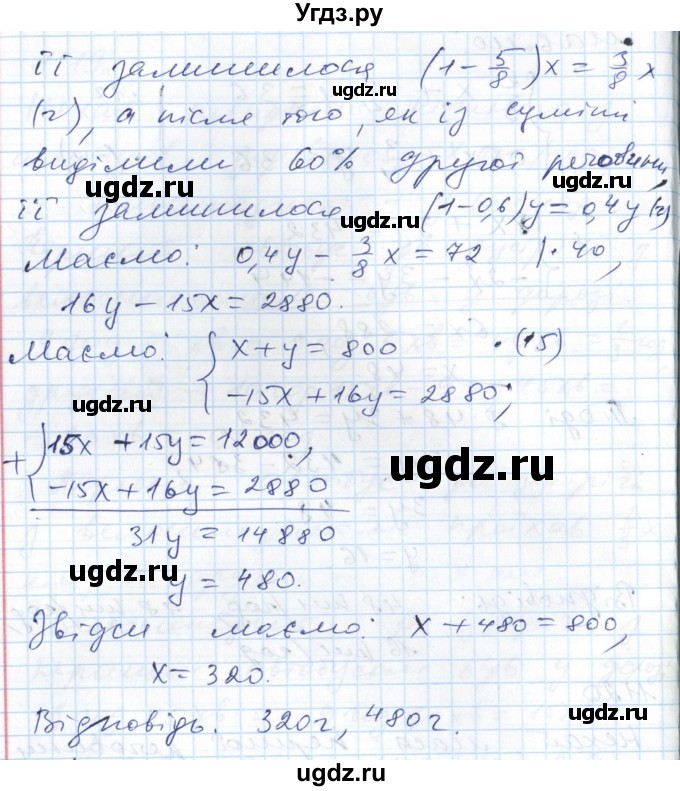 Угдз.ру
її залишилося (1 - 5/8)x = 3/8 x
(г), а після того, як із суміші
виділили 60% другої речовини,
її залишилося (1-0,6)y = 0,4y (г)
Маємо: 0,4y - 3/8 x = 72 |· 40,
16y - 15x = 2880.
Маємо: { x + y = 800 · (15)
-15x + 16y = 2880;
+ { 15x + 15y = 12000,
-15x + 16y = 2880
31y = 14880
y = 480.
Звідси маємо: x + 480 = 800,
x = 320.
Відповідь. 320г, 480г.
ugdz.ru
ugdz.ru
ugdz.ru
ugdz.ru
ugdz.ru
ugdz.ru
ugdz.ru
ugdz.ru
ugdz.ru
ugdz.ru
ugdz.ru
ugdz.ru